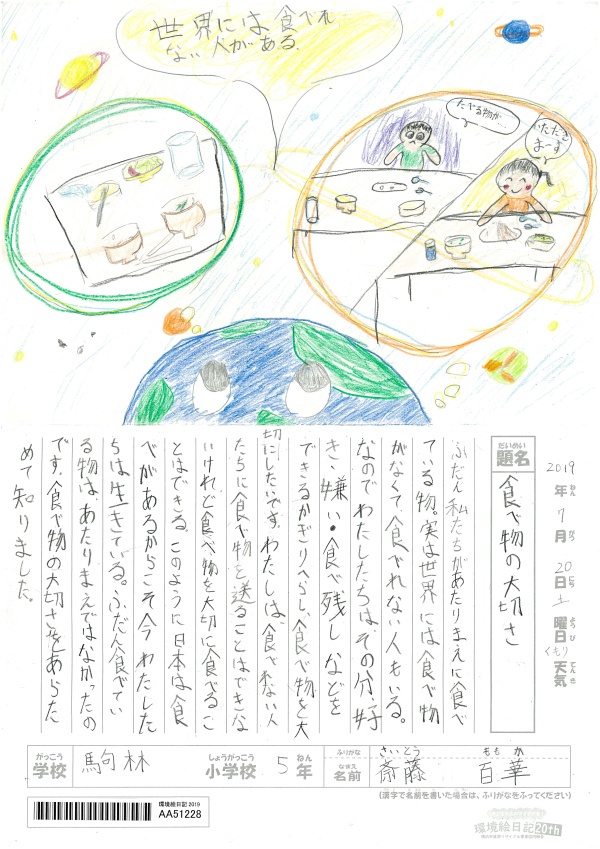 世界には食べれ
ない人がある。
たべる物が…
いただき
まーす
だいめい
題名
食べ物の大切さ
2019
年 ねん
7
月 がつ
20
日 にち
土
曜日 ようび
くもり
天気 てんき
ふだん私たちがあたりまえに食べ
ている物。実は世界には食べ物
がなくて、食べれない人もいる。
なのでわたしたちはその分、好
き・嫌い・食べ残しなどを
できるかぎりへらし、食べ物を大
切にしたいです。わたしは、食べれない人
たちに食べ物を送ることはできな
いけれど食べ物を大切に食べるこ
とはできる。このように日本は食
べがあるからこそ今わたした
ちは生きている。ふだん食べてい
る物は、あたりまえではなかったの
です。食べ物の大切さをあらた
めて知りました。
がっこう
学校
駒林
しょうがっこう
小学校
5
ねん
年
ふりがな
さいとう ももか
なまえ
名前
斎藤 百華
(漢字で名前を書いた場合は、ふりがなをふってください)
環境絵日記 2019
AA51228
環境絵日記20th